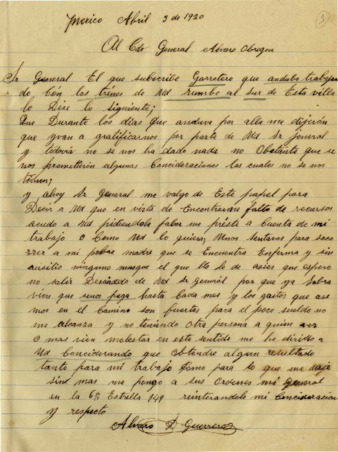 Mexico Abril 3 de 1920
Al Cdo General Alvaro Obregon
Sr General El que subscribe Garrotero que andubo trabajan
do Con los trenes de Ud rumbo al sur de Esta villa
le Dise lo siguiente;
Que Durante los dias que anduve por alla me dijeron
que ivan a gratificarnos por parte de Ud Sr General
y todavia no se nos ha dado nada no Obstante que se
nos prometieron algunas Concideraciones las cuales no se nos
y ahoy Sr General me valgo de Este papel para
Decir a Ud que en vista de Encontrarme falto de recursos
acudo a Ud pidiendole fabor me preste a Cuenta de mi
trabajo o Como Ud lo quiera; Unos sentavos para soco
rrer a mi pobre madre que se Encuentra Enferma y sin
ausilio ninguno mas que el que
no salir de Ud Sr General por que ya Sabra
vien que una paga hasta Cada mes y los gastos que ase
mos en el Camino son fuertes para el poco sueldo no
me alcanza y no teniendo Otra persona a quien ver
o mas vien molestar en este sentido me he dirijido a
Ud Conciderando que Obtendre algun resultado
tanto para mi trabajo Como para lo que me
sin mas me pongo a sus Ordenes mi General
en la 6ta Estrella 149 reinterandole mi Concideracion
y respecto
Alvaro D Guerrero